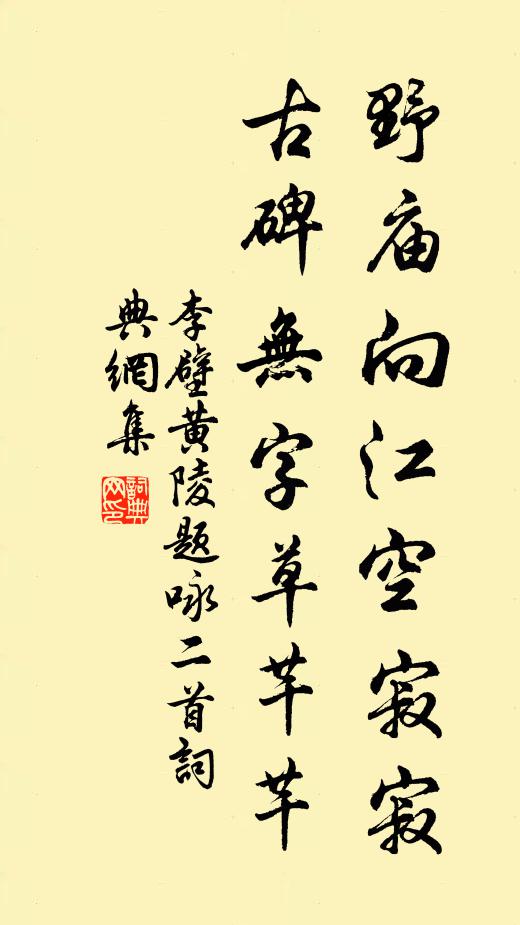 野庙向江空寂寂
古碑無字草芊芊
李壁黄陵题咏二首詞
典網集
詞典
网印